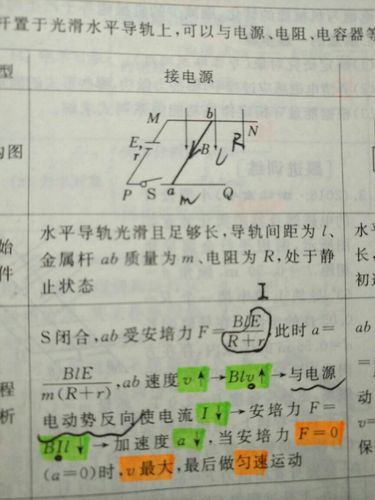 开置于光滑水平导轨上,可以与电源、电阻、电容器等
型
接电源
M
b
N
R
E,
r
B
l
P
S
a
Q
m
构图
始
件
水平导轨光滑且足够长,导轨间距为 l、
金属杆 ab 质量为 m、电阻为 R,处于静
止状态
水平
长,
初
I
S闭合,ab 受安培力 F=BlE/(R+r),此时 a=
BlE/m(R+r),ab 速度 v↑→Blv↑→与电源
电动势反向使电流 I↓→安培力 F=
BIl↓→加速度 a↓,当安培力 F=0
(a=0)时,v 最大,最后做匀速运动
程
析
ab
=
动
=
保